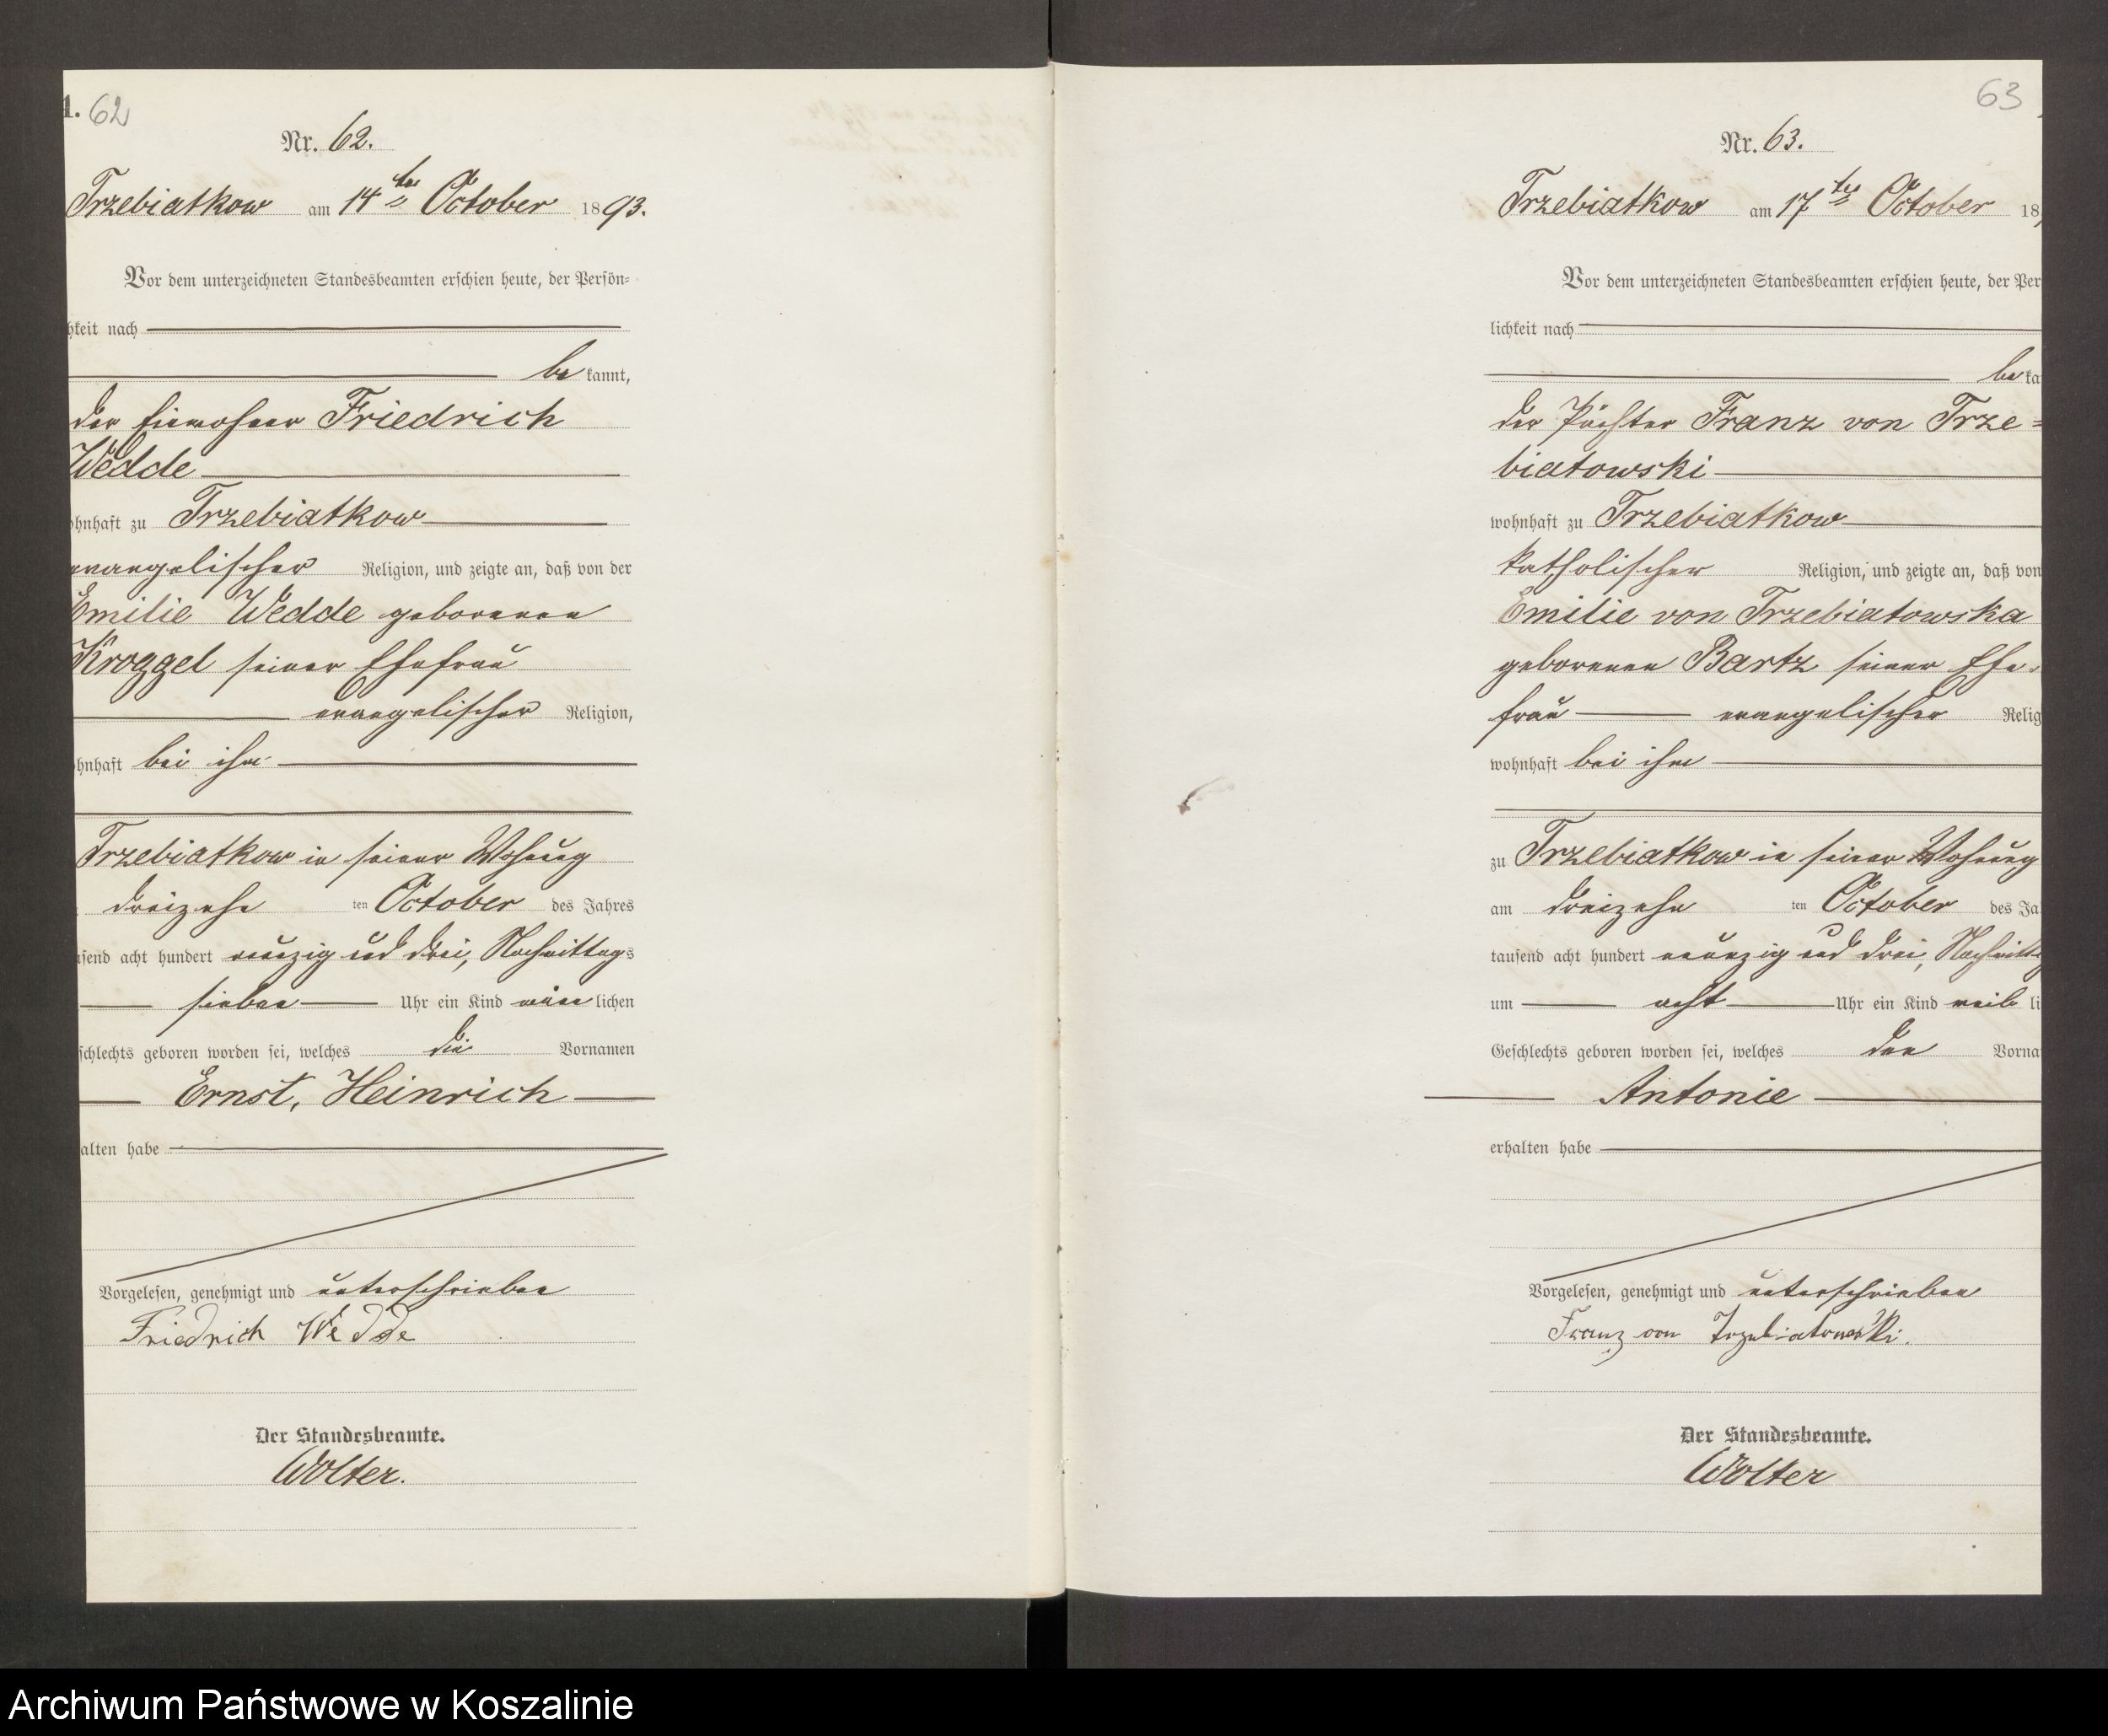 1. 62
Nr. 62.
Trzebiatkow am 14ten October 1893.
Vor dem unterzeichneten Standesbeamten erschien heute, der Persön-
hkeit nach
be kannt,
der Einwohner Friedrich
Wedde
ohnhaft zu Trzebiatkow
evangelischer Religion, und zeigte an, daß von der
Emilie Wedde geborenen
Kroggel seiner Ehefrau
evangelischer Religion,
ohnhaft bei ihm
Trzebiatkow in seiner Wohnung
dreizehn ten October des Jahres
usend acht hundert neunzig und drei, Nachmittags
sieben Uhr ein Kind männlichen
schlechts geboren worden sei, welches die Vornamen
Ernst, Heinrich
alten habe
Vorgelesen, genehmigt und unterschrieben
Friedrich Wedde
Der Standesbeamte.
Wolter.
63
Nr. 63.
Trzebiatkow am 17ten October 18
Vor dem unterzeichneten Standesbeamten erschien heute, der Per
lichkeit nach
be ka
der Pächter Franz von Trze=
biatowski
wohnhaft zu Trzebiatkow
katholischer Religion, und zeigte an, daß von
Emilie von Trzebiatowska
geborenen Bartz seiner Ehe-
frau evangelischer Relig
wohnhaft bei ihm
zu Trzebiatkow in seiner Wohnung
am dreizehn ten October des Ja
tausend acht hundert neunzig und drei, Nachmitt
um acht Uhr ein Kind weib li
Geschlechts geboren worden sei, welches den Vorna
Antonie
erhalten habe
Vorgelesen, genehmigt und unterschrieben
Franz von Trzebiatowski.
Der Standesbeamte.
Wolter
Archiwum Państwowe w Koszalinie